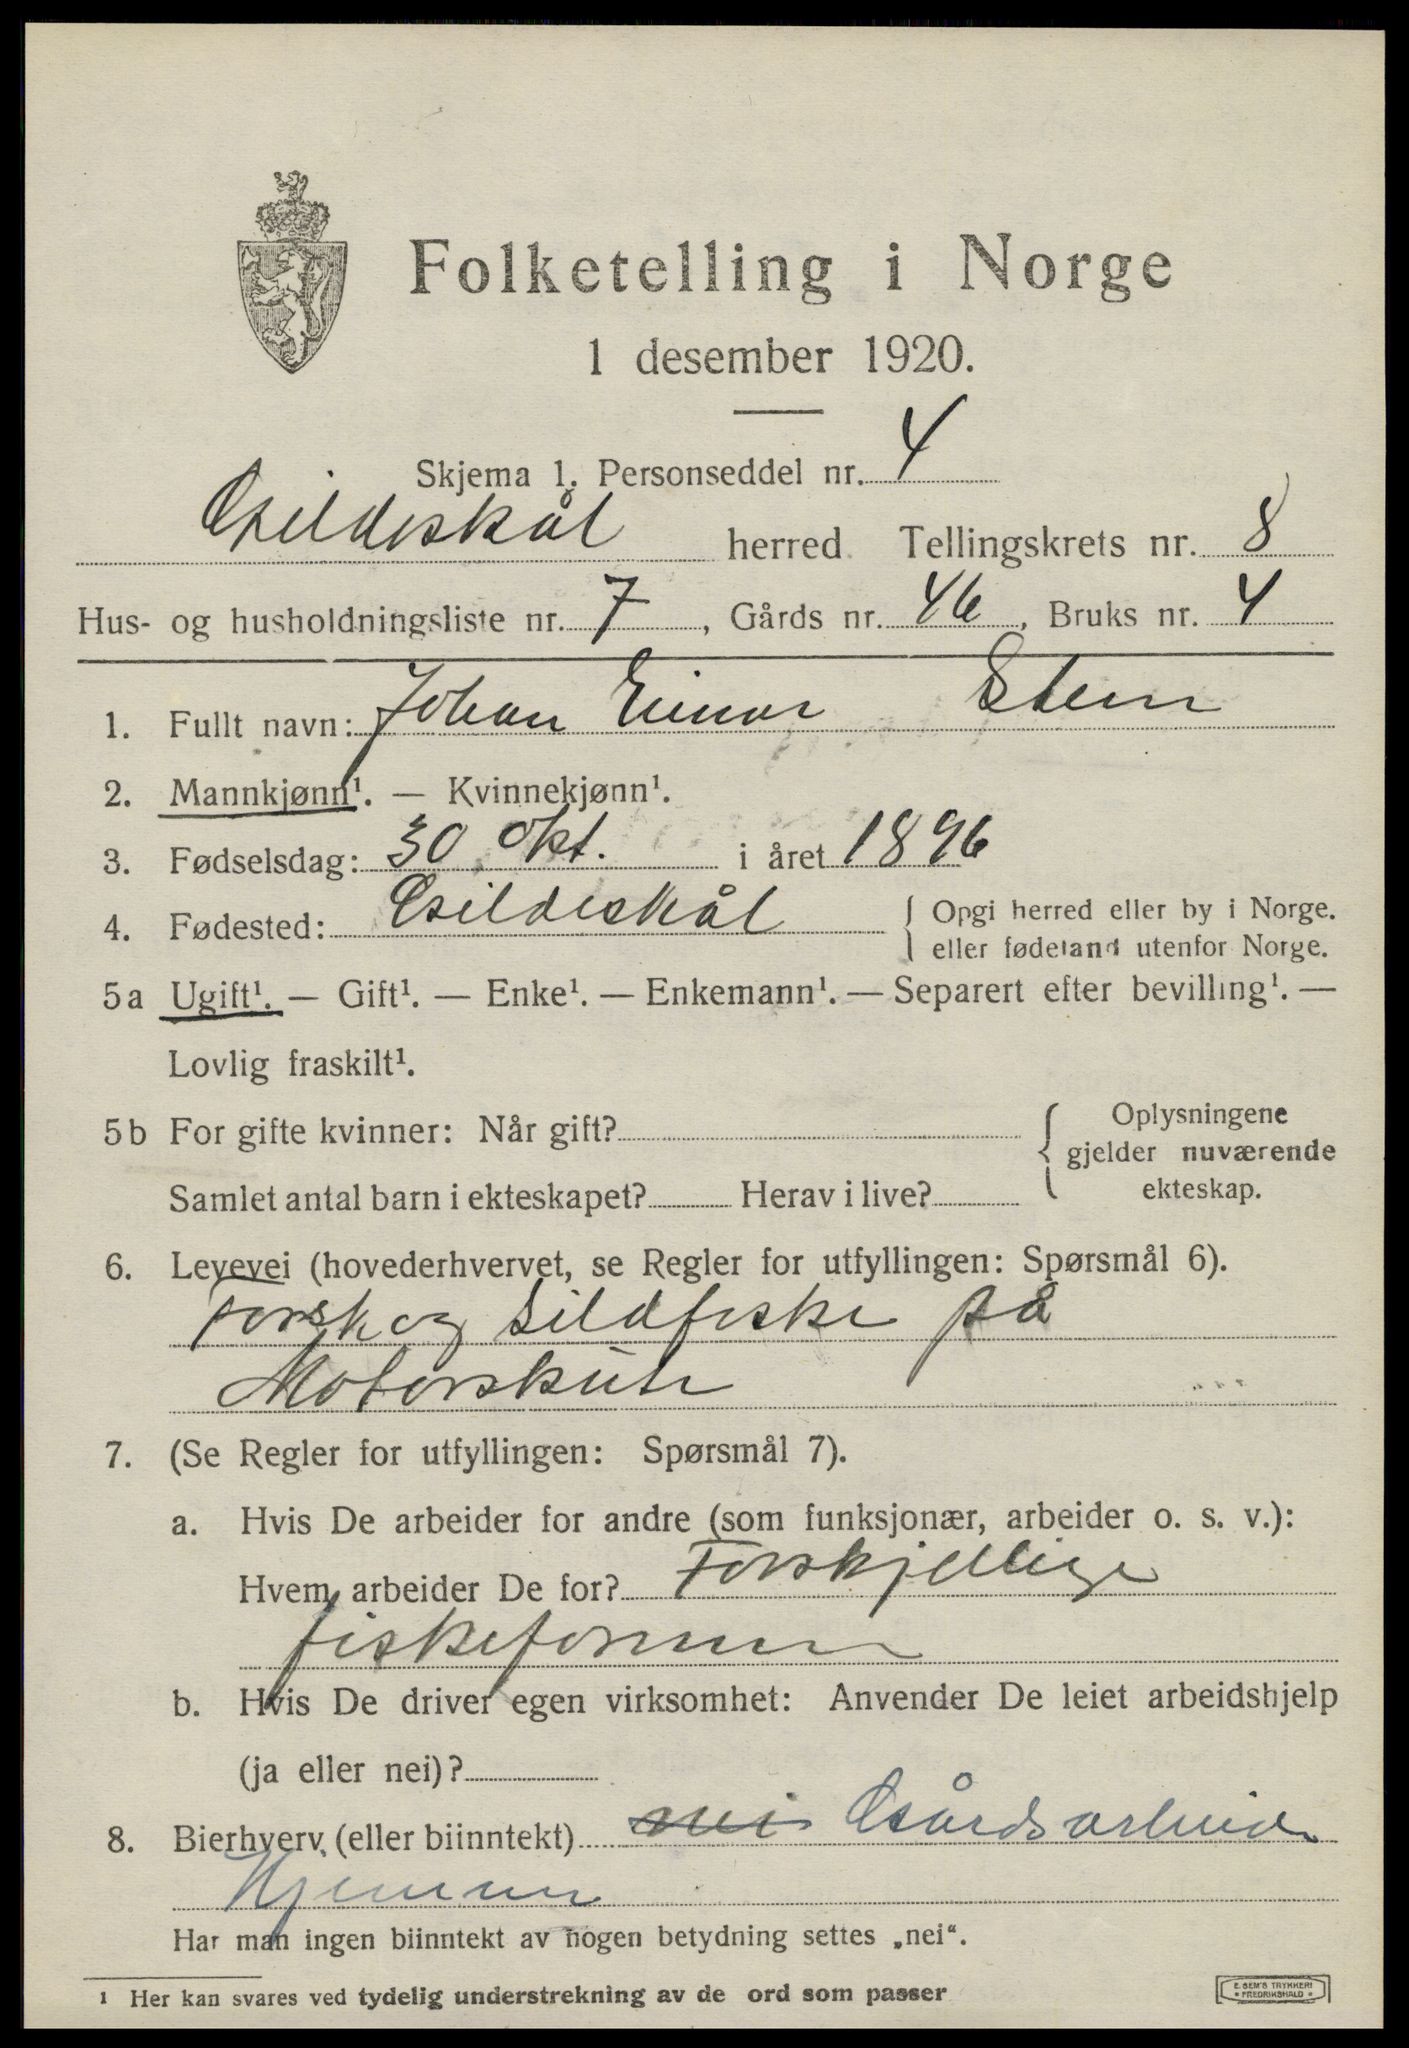 Folketelling i Norge
1 desember 1920.
Skjema 1. Personseddel nr. 4
Gildeskål herred Tellingskrets nr. 8
Hus- og husholdningsliste nr. 7, Gårds nr. 46, Bruks nr. 4
1. Fullt navn: Johan Einar Sten
2. Mannkjønn¹. — Kvinnekjønn¹.
3. Fødselsdag: 30 Okt. i året 1896
4. Fødested: Gildeskål { Opgi herred eller by i Norge.
eller fødeland utenfor Norge.
5a Ugift¹. — Gift¹. — Enke¹. — Enkemann¹. — Separert efter bevilling¹. —
Lovlig fraskilt¹.
5b For gifte kvinner: Når gift?
Samlet antal barn i ekteskapet? Herav i live?
Oplysningene
gjelder nuværende
ekteskap.
6. Levevei (hovederhvervet, se Regler for utfyllingen: Spørsmål 6).
Torsk og Sildfiske på
Motorskute
7. (Se Regler for utfyllingen: Spørsmål 7).
a. Hvis De arbeider for andre (som funksjonær, arbeider o. s. v.):
Hvem arbeider De for? Forskjellige
b. Hvis De driver egen virksomhet: Anvender De leiet arbeidshjelp
(ja eller nei)?
8. Bierhverv (eller biinntekt) nei Gårdsarbeide
Hjemme
Har man ingen biinntekt av nogen betydning settes „nei“.
¹ Her kan svares ved tydelig understrekning av de ord som passer
E. SEM'S TRYKKERI
* FREDRIKSHALD *